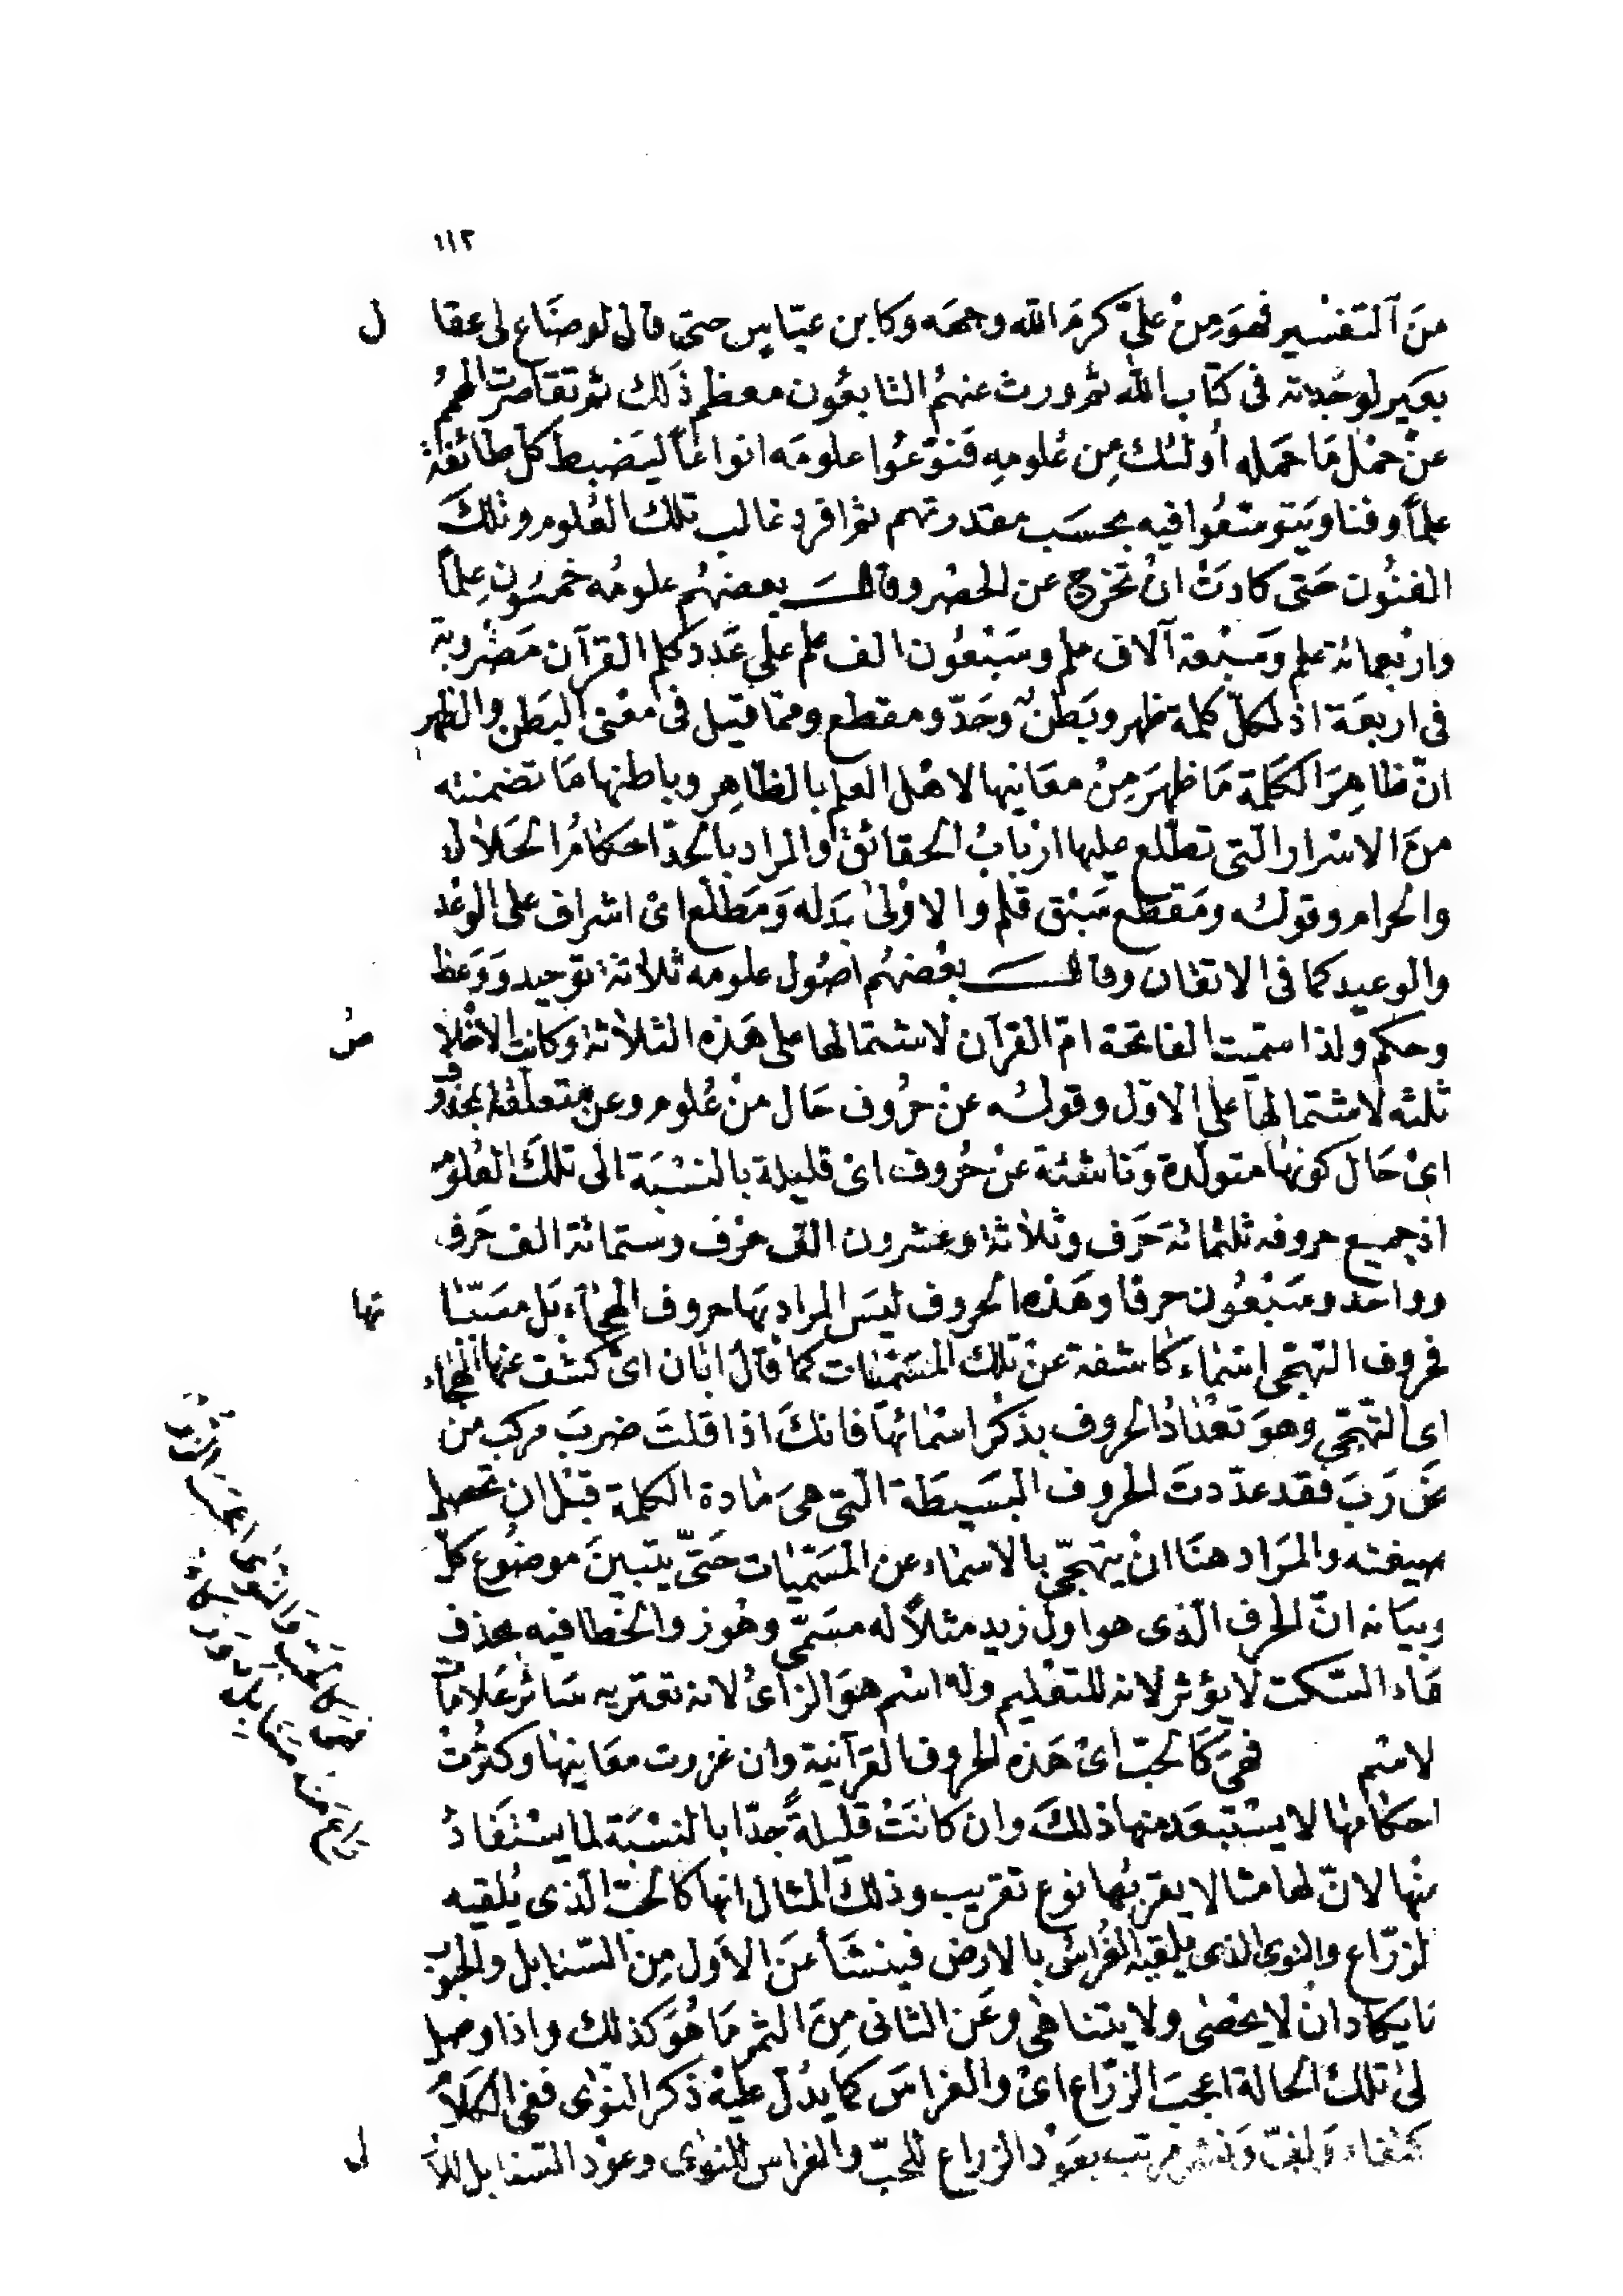 ١١٢
من التفسير فهو من علىّ كرم الله وجهه وكابن عبّاس حتى قال لو ضاع لى عقال
بعير لوجدته فى كتاب الله ثم ورث عنهم التابعون معظم ذلك ثم تقاصرت الهمم
عن حمل ما حمله أولئك من علومه فنوّعوا علومه انواعا ليضبط كل طائفة
علماً وفنا ويتوسّعوا فيه بحسب مقدرتهم ثم افرد غالب تلك العلوم وتلك
الفنون حتى كادت ان تخرج عن الحصر وقال بعضهم علومه خمسون علماً
واربعمائة علم وسبعة آلاف علم وسبعون الف علم على عدد كلم القرآن مضروبة
فى اربعة اذ لكلّ كلمة ظهر وبطن وحدّ ومقطع ومما قيل فى معنى البطن والظهر
انّ ظاهر الكلمة ما ظهر من معانيها لاهل العلم بالظاهر وباطنها ما تضمنته
من الاسرار التى تطّلع عليها ارباب الحقائق والمراد بالحدّ احكام الحلال
والحرام وقوله ومقطع سبق قلم والاولى بدله ومطّلع اى اشراف على الوعد
والوعيد كما فى الاتقان وقال بعضهم اصول علومه ثلاثة توحيد ووعظ
وحكم ولذا سمّيت الفاتحة امّ القرآن لاشتمالها على هذه الثلاثة وكانت الاخلاص
ثلثه لاشتمالها على الاوّل وقوله عن حروف حال من علوم وعن متعلقة بمحذوف
اى حال كونها متولدة وناشئة عن حروف اى قليلة بالنسبة الى تلك العلوم
اذ جميع حروفه ثلثمائة حرف وثلاثة وعشرون الف حرف وستمائة الف حرف
وواحد وسبعون حرفا وهذه الحروف ليس المراد بها حروف الهجاء بل مسمّياتها
فحروف التهجى اسماء كاشفة عن تلك المسمّيات كما قال ابان اى كشف عنها الهجاء
اى التهجّى وهو تعداد الحروف بذكر اسمائها فانك اذا قلت ضرب مركب من
ض ر ب فقد عدّدت الحروف البسيطة التى هى مادة الكلمة قبل ان تحصل
صيغته والمراد هنا ان يتهجّى بالاسماء عن المسمّيات حتّى يتبين موضوع كلّ
وبيانه انّ الحرف الّذى هو اول زيد مثلاً له مسمّى وهو ز والخطا فيه بحذف
هاء السّكت لا يؤثر لانه للتعليم وله اسم هو الزاى لانه تعتريه سائر علامات
لاسم فهى كالحبّ اى هذه الحروف القرآنية وان غزرت معانيها وكثرت
احكامها لا يستبعد منها ذلك وان كانت قليلةً جدّا بالنسبة لما يستفاد
منها لانّ لها مثالا يقربها نوع تقريب وذلك المثال انها كالحبّ الّذى يلقيه
لزرّاع والنوى الذى يلقيه الغراس بالارض فينشأ عن الاول من السّنابل والحبوب
ما يكاد ان لا يحصى ولا يتناهى وعن الثانى من الثمر ما هو كذلك واذا وصل
لى تلك الحالة اعجب الزرّاع اى والغراس كما يدل عليه ذكر النوى ففى الكلام
كتفاء ولفّ ونشر مرتب بعود الزراع للحبّ والغراس للنوى وعود السنابل للاول
فهى كالحب والنوى اعجب الزرا
ع منه سنابل وزكاء